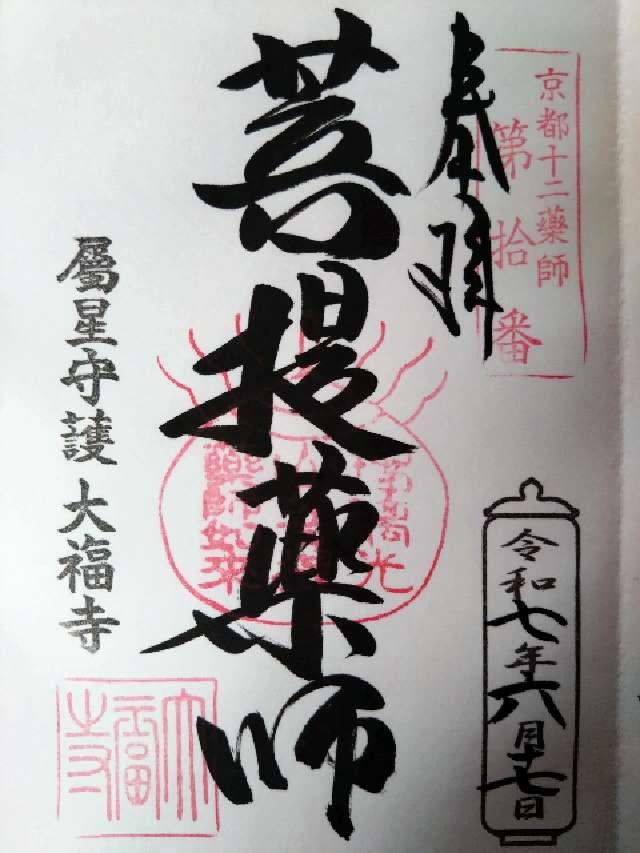 京都十二薬師
第拾番
奉拝
令和七年六月十七日
菩提薬師
屬星守護 大福寺
大福寺